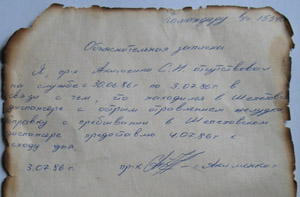 Командиру в/ч 1554
Объяснительная записка
Я, пр-к Акименко С.Н. отсутствовал
на службе с 30.06.86г по 3.07.86г в
связи с тем, что находился в Шепетовском
диспансере с острым отравлением желудка
справку о пребывании в Шепетовском
диспансере предоставлю 4.07.86г к
исходу дня.
3.07.86г. пр-к Акименко